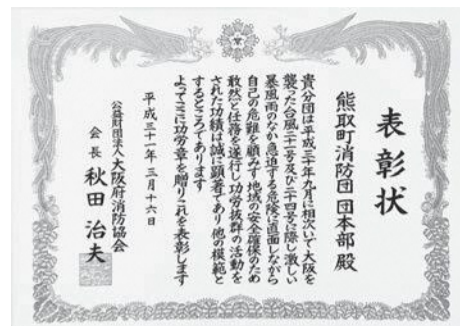 表彰状
熊取町消防団 団本部 殿
貴分団は平成三十年九月に相次いで大阪を
襲った台風二十一号及び二十四号に際し激しい
暴風雨のなか急迫する危険に直面しながら
自己の危難を顧みず地域の安全確保のため
敢然と任務を遂行し功労抜群の活動を
された功績は誠に顕著であり他の模範と
するところであります
よってここに功労章を贈りこれを表彰します
平成三十一年三月十六日
公益財団法人大阪府消防協会
会長 秋田治夫